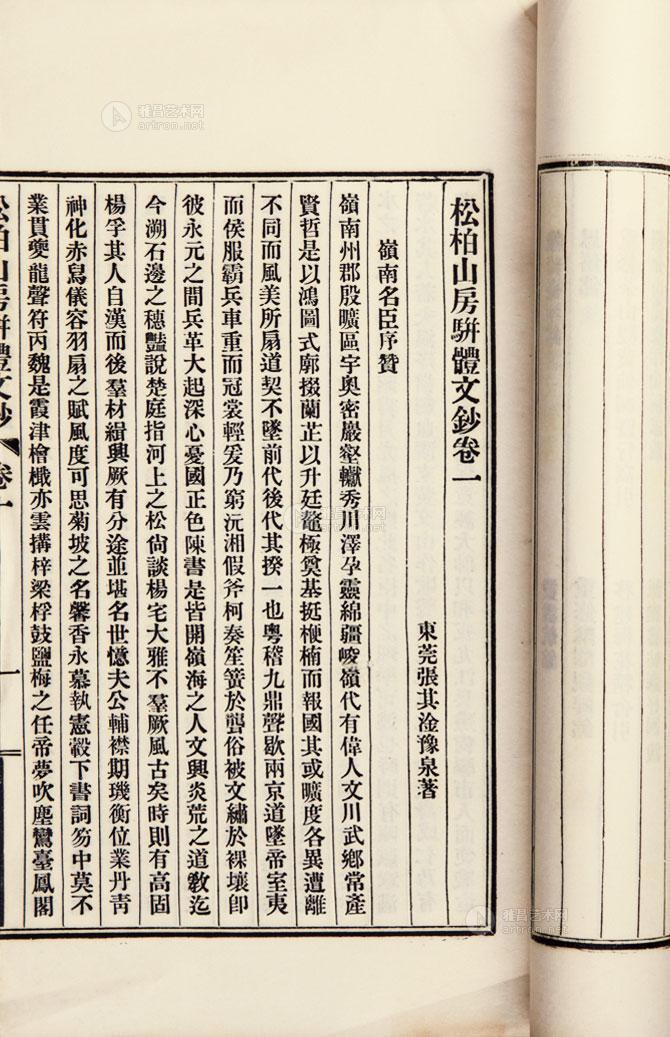 松柏山房駢體文鈔卷一
東莞張其淦豫泉著
嶺南名臣序贊
嶺南州郡殷曠區宇奧密巖壑巘秀川澤孕靈綿疆峻嶺代有偉人文川武鄉常產
賢哲是以鴻圖式廓掇蘭芷以升廷鼇極奠基挺楩楠而報國其或曠度各異遭離
不同而風美所扇道契不墜前代後代其揆一也粵稽九鼎聲歇兩京道墜帝室夷
而侯服霸兵車重而冠裳輕爰乃窮沅湘假斧柯奏笙簧於聾俗被文繡於裸壤卽
彼永元之間兵革大起深心憂國正色陳書是皆開嶺海之人文興炎荒之道教迄
今溯石邊之穗豔說楚庭指河上之松尙談楊宅大雅不羣厥風古矣時則有高固
楊孚其人自漢而後羣材緝興厥有分途並堪名世憶夫公輔襟期璣衡位業丹青
神化赤舄儀容羽扇之賦風度可思菊坡之名馨香永慕執憲轂下書詞笏中莫不
業貫夔龍聲符丙魏是霞津檜檝亦雲搆梓梁桴鼓鹽梅之任帝夢吹塵鸞臺鳳閣
松柏山房駢體文鈔 卷一
一
雅昌艺术网
artron.net
雅昌艺术网
artron.net
雅昌艺术网
artron.net